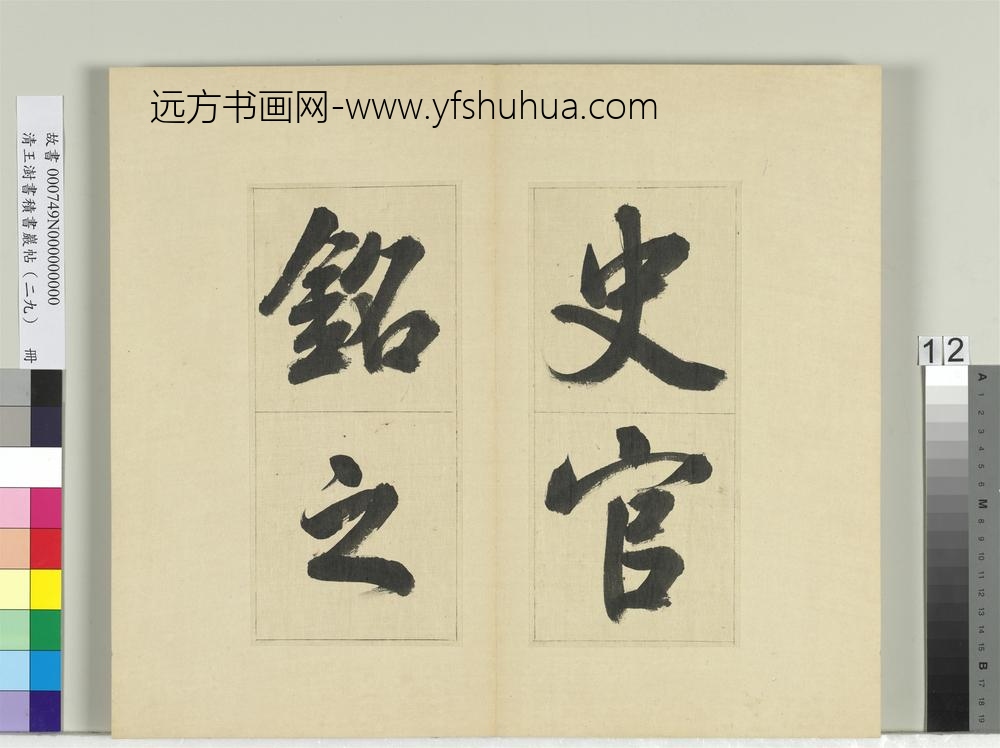 远方书画网-www.yfshuhua.com
史官
銘之
故書 000749N000000000
清王澍書積書巖帖(二九) 冊
12
A 1 2 3 4 5 6 M 8 9 10 11 12 13 14 15 B 17 18 19